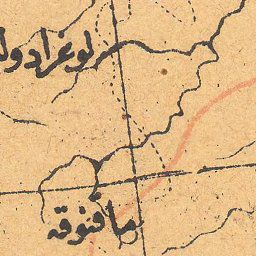 لوغرادولا
مافنوقه